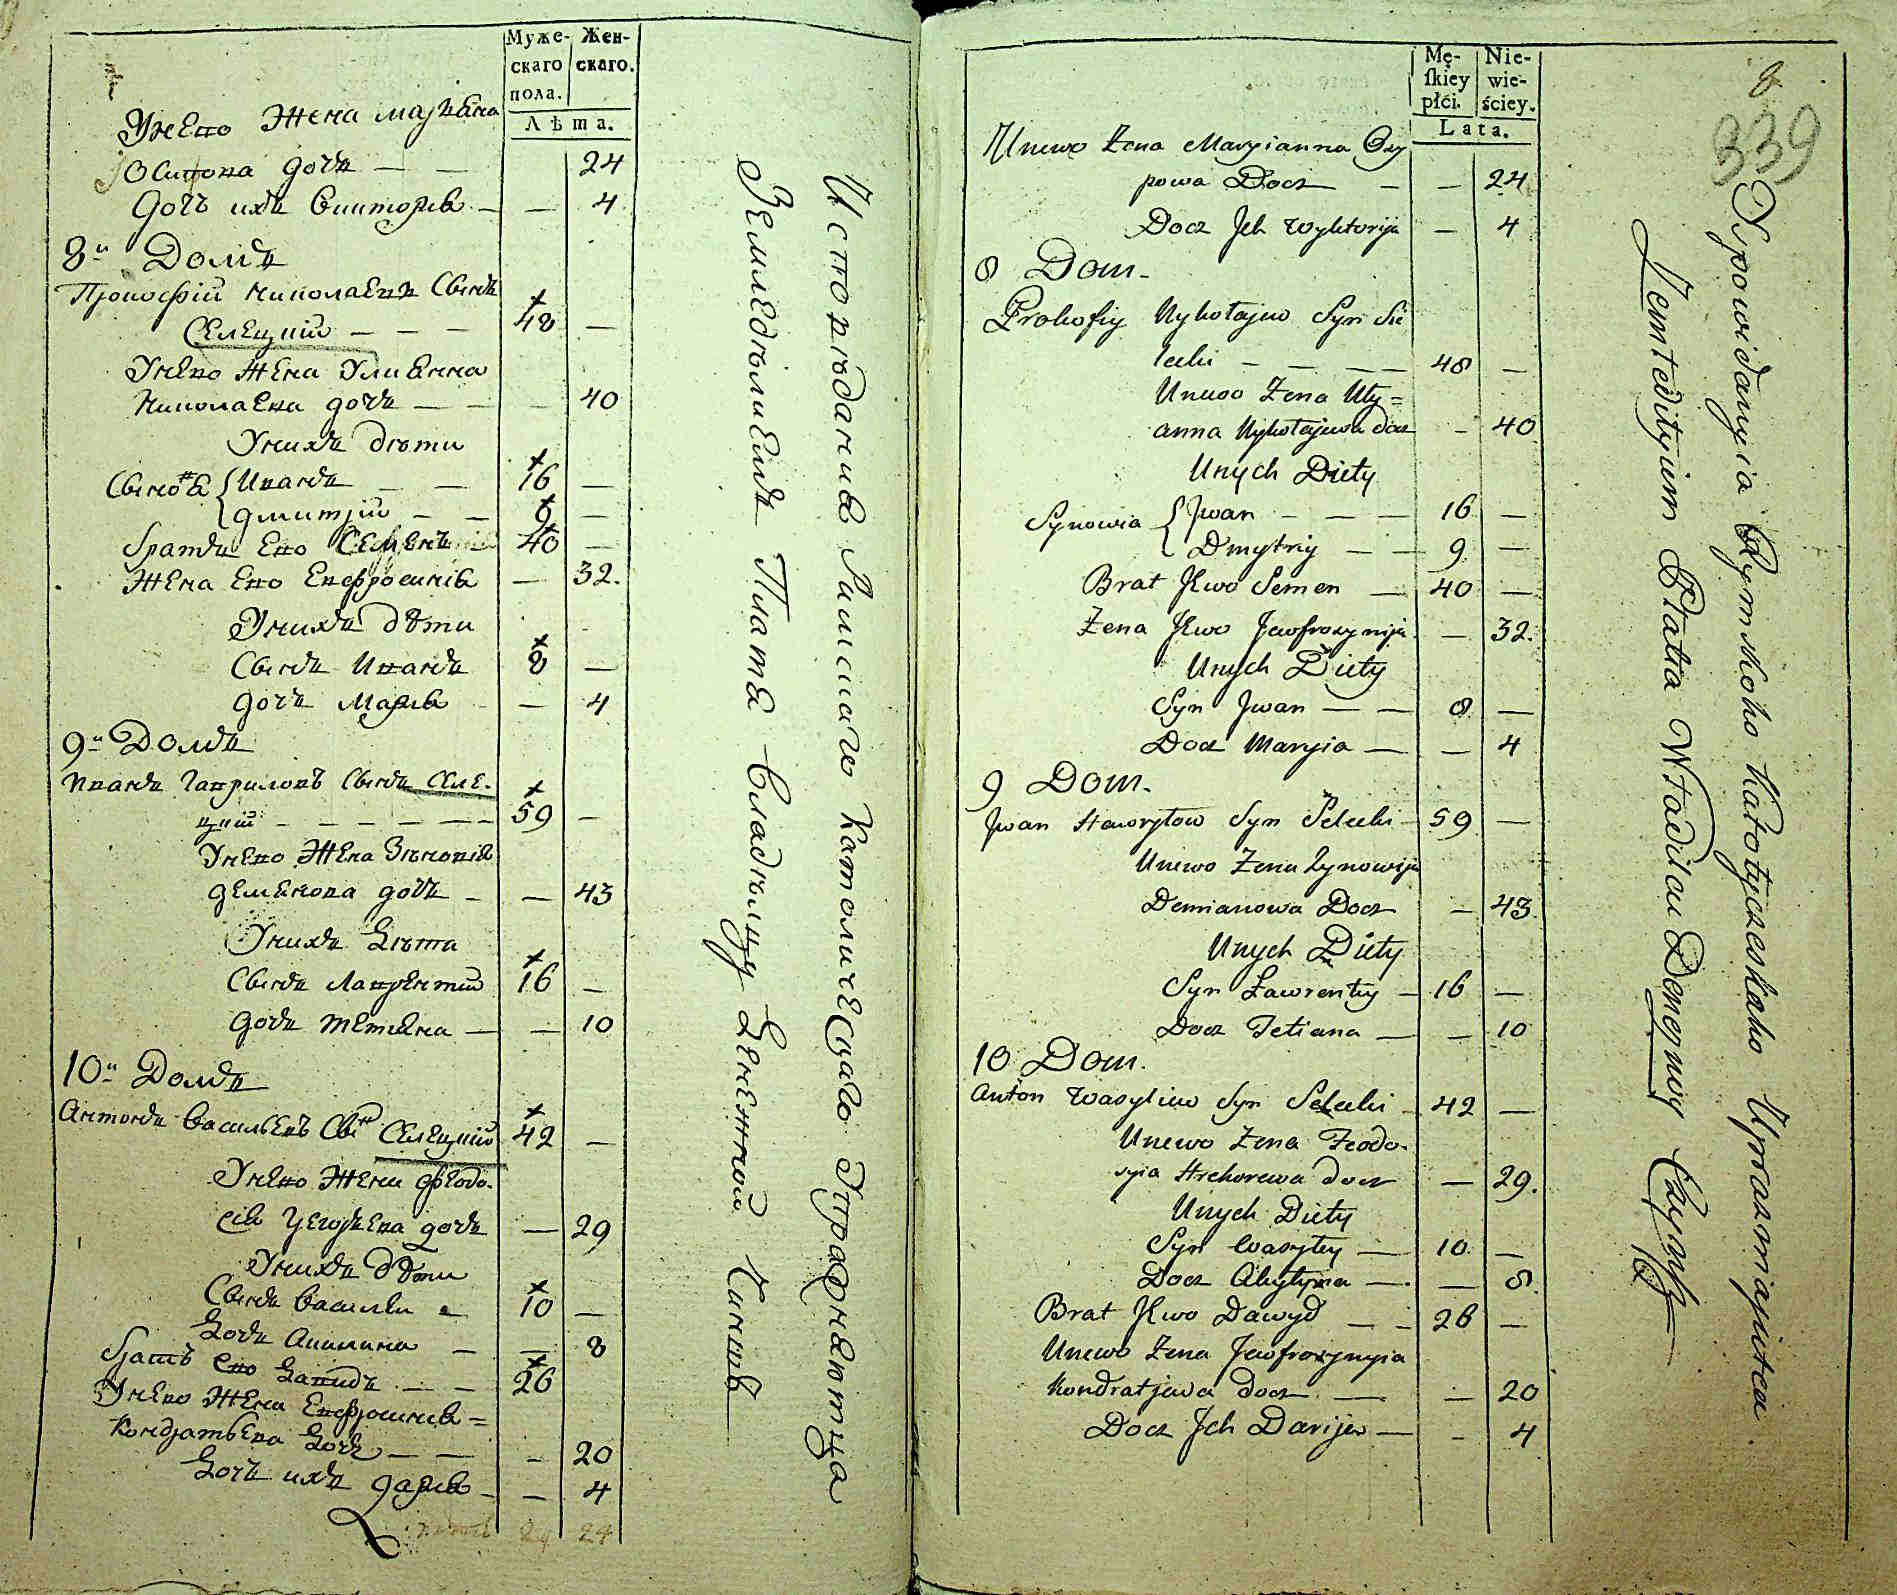 Муже-
скаго
пола.
Жен-
скаго.
Лѣта.
Унево Жена Марѣяна
Осипова дочъ — — 24
Дочъ ихъ Викторія — — 4
8й Домъ
Прокофій Николаевъ Сынъ
Селецкій — — — 48 —
Унево Жена Улиянна
Николаева дочъ — — — 40
Унихъ дѣти
Сыновя { Иванъ — — 16 —
Дмитрій — — 9 —
Братъ Ево Семенъ — 40 —
Жена Ево Евфросинія — 32.
Унихъ дѣти
Сынъ Иванъ 8 —
дочъ Марія — 4
9й Домъ
Иванъ Гавриловъ Сынъ Селе-
цкій — — — — — — 59 —
Унево Жена Зѣновія
Деменова дочъ — — 43
Унихъ Дѣти
Сынъ Лаврентій 16 —
Дочъ Тетіяна — — 10
10й Домъ
Антонъ Васильевъ Сынъ Селецкій 42 —
Унево Жена Феодо-
сія дочъ — 29
Унихъ дѣти
Сынъ Василій 10 —
Дочъ Акилина — — 8
Братъ Ево Давидъ — — 26 —
Унево Жена Евфросинія =
Кондратьева Дочъ — — — 20
Дочъ ихъ Дарія — — 4
24 24
Исповѣданія Римскаго Католическаго Упражняютца
Земледѣлиемъ Плата Владѣльцу Денежной Чиншъ
Mę-
skiey
płći.
Nie-
wie-
ściey.
Lata.
8
339
Unewo Żena Maryianna Osy
powa Docz — — 24
Docz Jch Wyktoryia — 4
8 Dom.
Prokofiy Nykołajew Syn Sie
lecki — — — — 48 —
Unewo Żena Uly=
anna Nykołajewa docz — 40
Unych Diety
Synowia { Jwan — — — 16 —
Dmytriy — — 9 —
Brat Jewo Semen — 40 —
Żena Jewo Jewfrosynija — 32.
Unych Diety
Syn Jwan — — 8 —
Docz Maryia — — 4
9 Dom.
Jwan Hawryłow Syn Selecki — 59 —
Unewo Żena Zynowija
Demianowa Docz — 43.
Unych Diety
Syn Ławrentiy — 16 —
Docz Tetiana — — 10
10 Dom.
Anton Wasyliew Syn Selecki — 42 —
Unewo Żena Feodo-
syia Hrehorewa docz — 29.
Unych Diety
Syn Wasyley — 10 —
Docz Akylyna — — 8.
Brat Jewo Dawyd — — 26 —
Unewo Żena Jewfrosynyia
Kondratjewa docz — — 20
Docz Jch Darija — — 4
Jspowidanyia Rymskoho Katołyczeskaho Uprażniajutca
Zemłedilyiem Płatia Władilcu Denezniy Czynsz